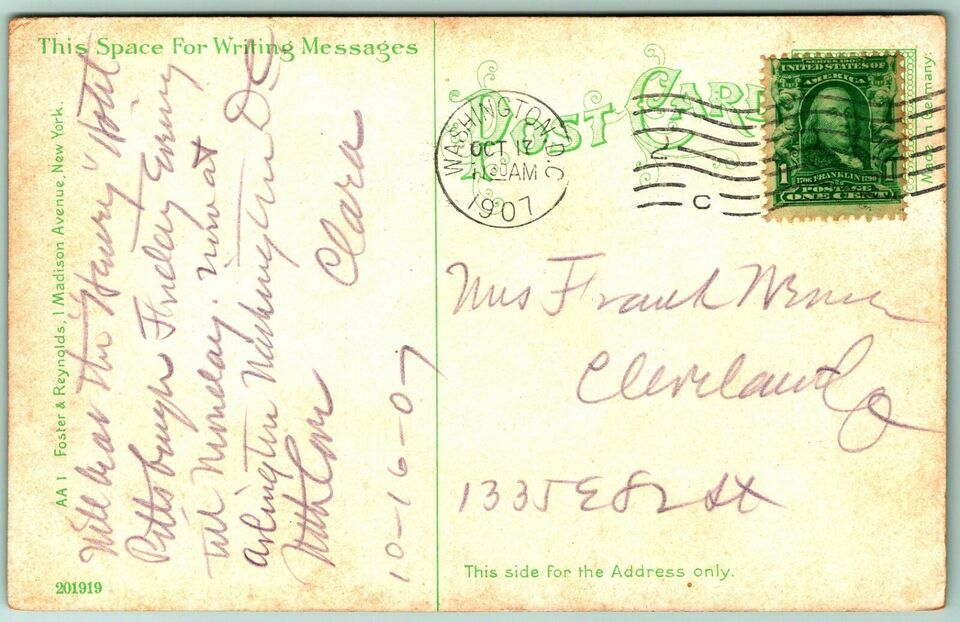 This Space For Writing Messages
Will be at the "Henry" Hotel
Pittsburgh Friday Evening
till Monday. now at
Arlington Washington DC
With Love
Clara
10-16-07
AA 1 Foster & Reynolds, 1 Madison Avenue, New York.
201919
POST CARD
WASHINGTON, D.C.
OCT 17
AM
1907
C
SERIES 1902
UNITED STATES OF
AMERICA
1706 FRANKLIN 1790
1 POSTAGE 1
ONE CENT
Made in Germany.
Mrs Frank
Cleveland O
1335 E 82 St
This side for the Address only.